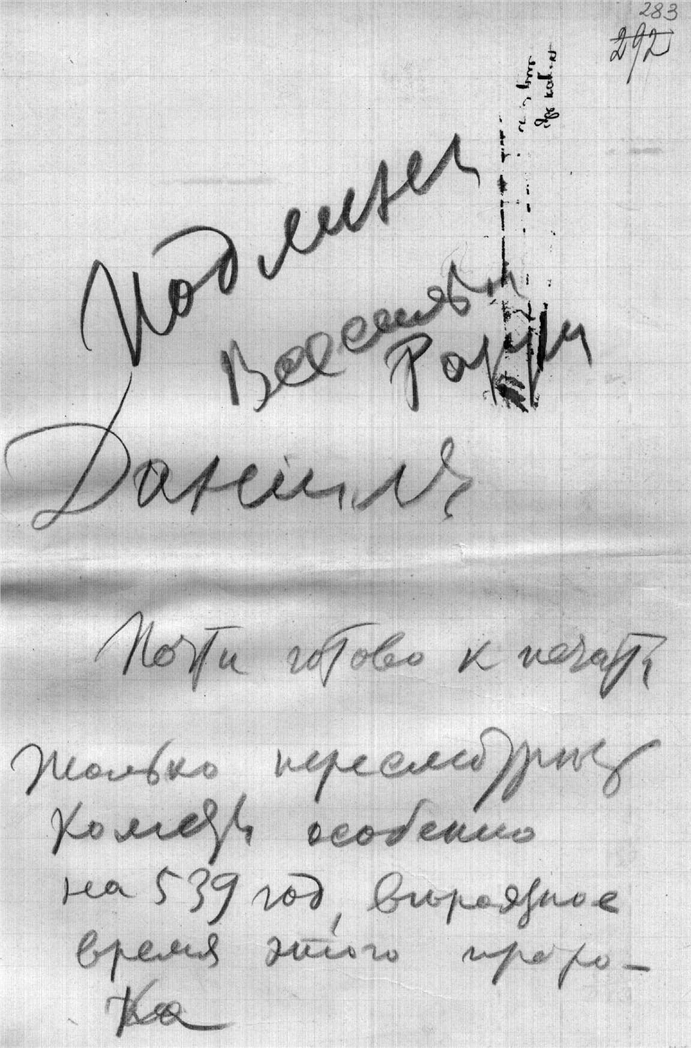 283
292
Подлинн
Даниил
Почти готово к печати
только пересмотрить
кометы особенно
на 539 год, вероятное
время этого проро-
ка